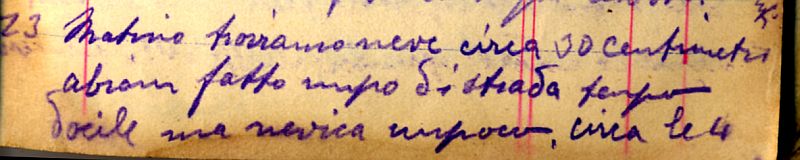 23 Matino torramo neve circa 30 centimetri
abiam fatto unpo di strada tempo
docile ma nevica unpoco, circa le 4